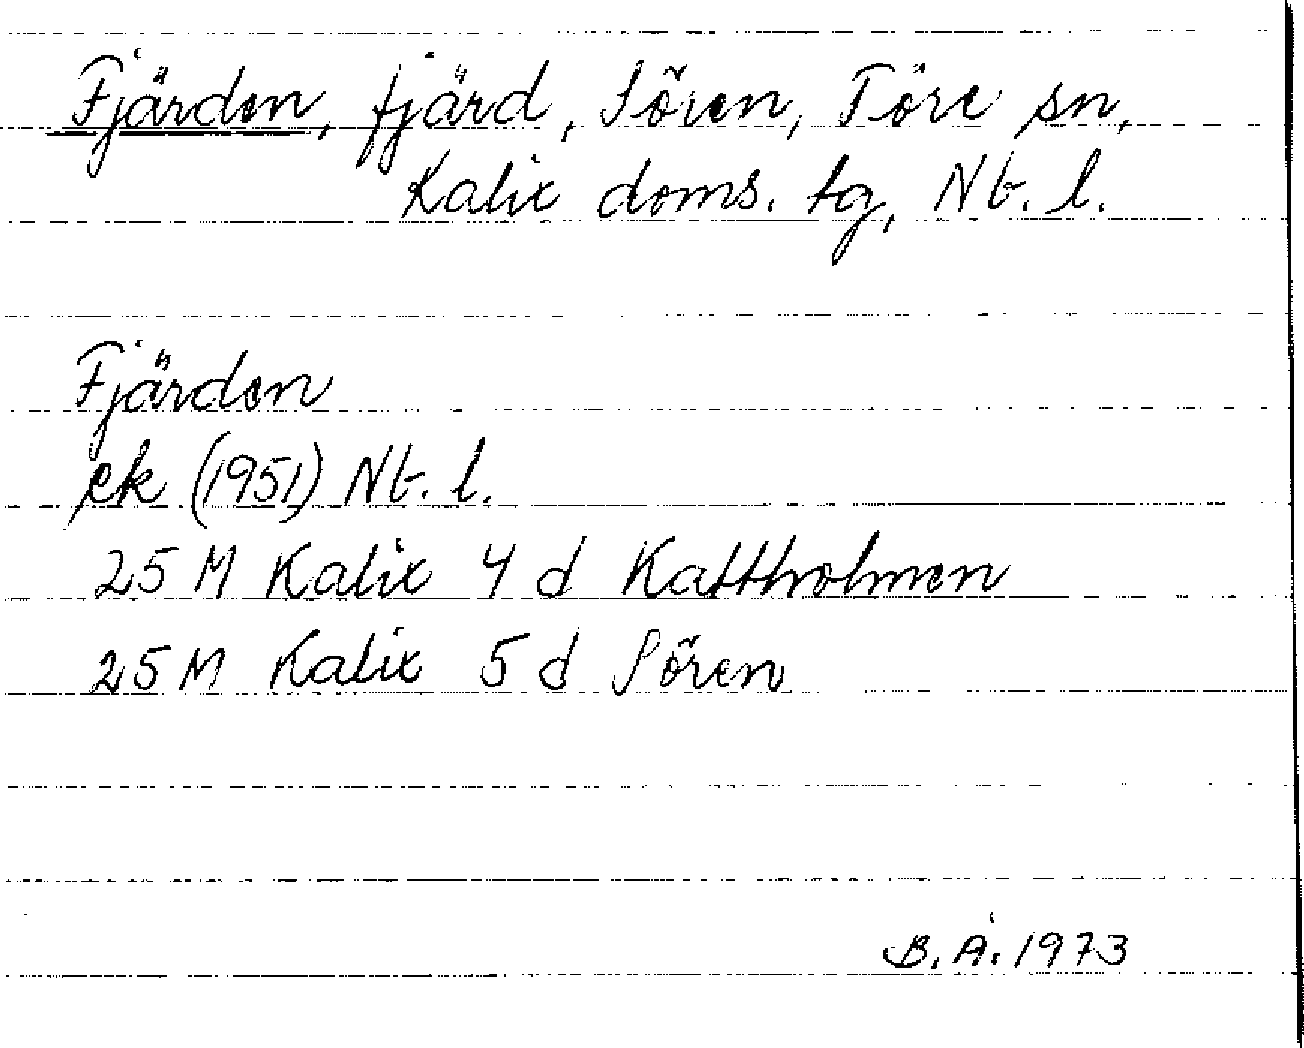 Fjärden, fjärd, Sören, Töre sn,
Kalix doms. tg, Nb. l.
Fjärden
ek (1951) Nb. l.
25 M Kalix 4 d Kattholmen
25 M Kalix 5 d Sören
B. Å. 1973